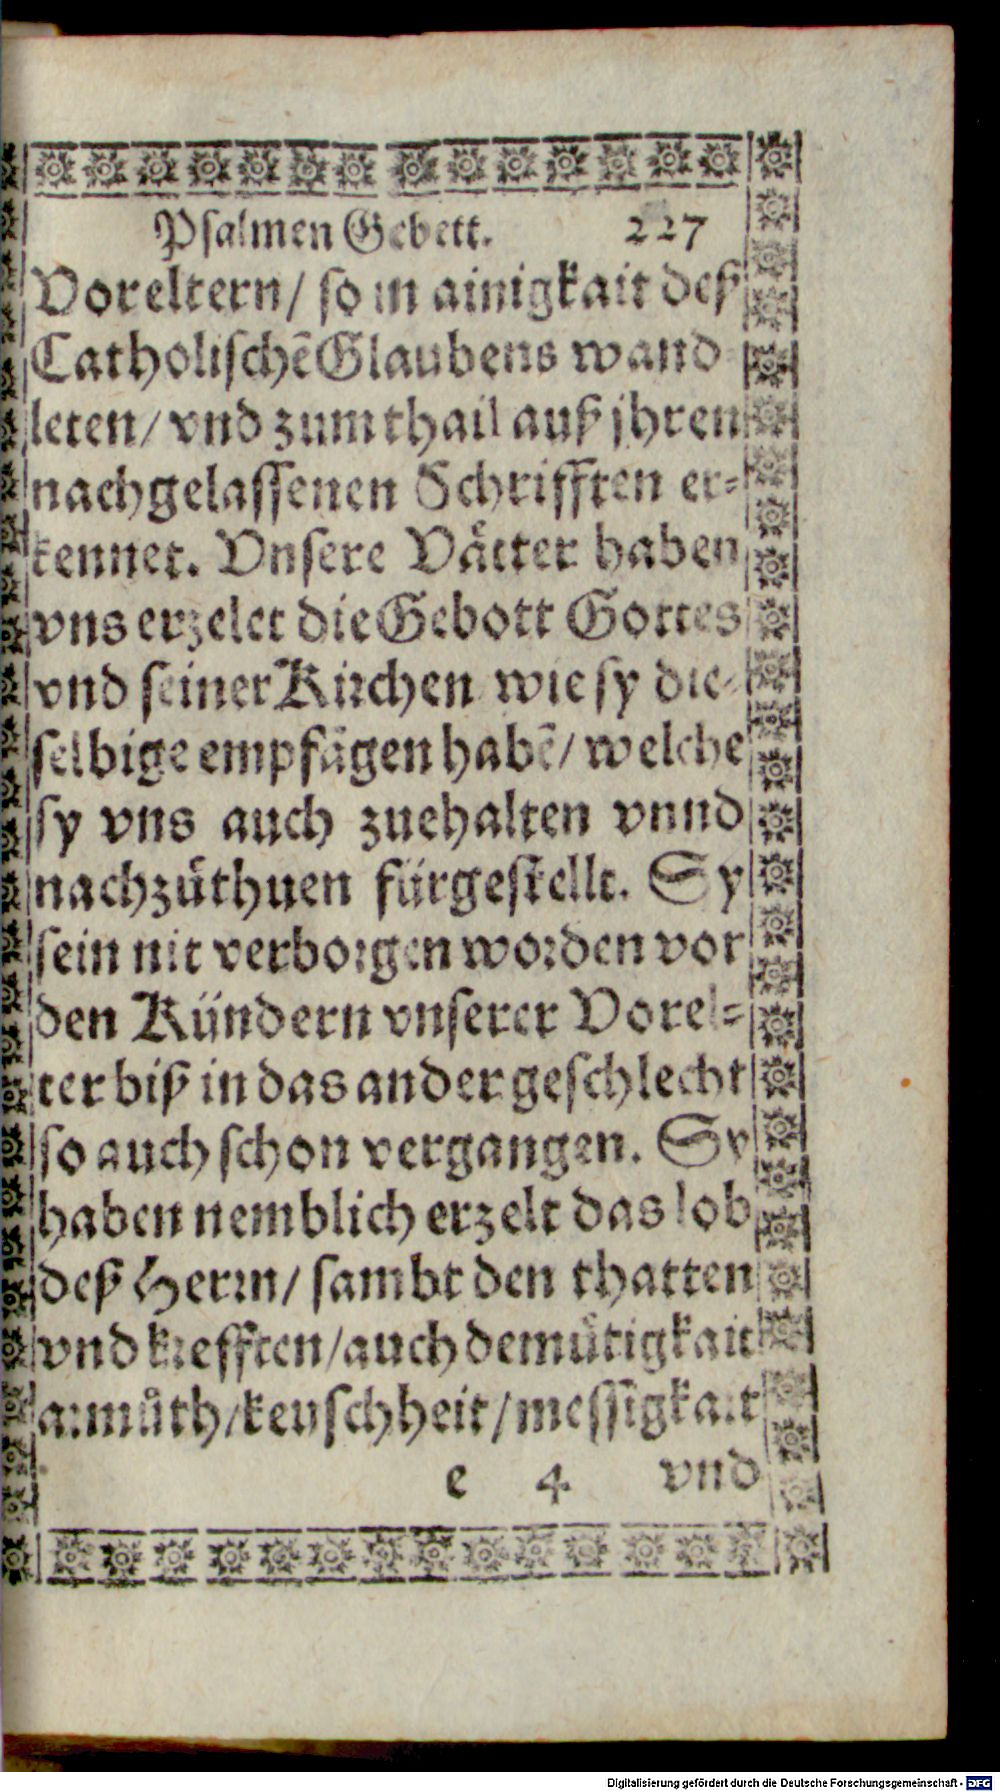 Psalmen Gebett. 227
Voreltern/ so in ainigkait deß
Catholischẽ Glaubens wand
leten/ vnd zum thail auß jhren
nachgelassenen Schrifften er⸗
kennet. Vnsere Vätter haben
vns erzelet die Gebott Gottes
vnd seiner Kirchen wie sy die⸗
selbige empfãgen habẽ/ welche
sy vns auch zuehalten vnnd
nachzůthuen fürgestellt. Sy
sein nit verborgen worden vor
den Kündern vnserer Vorel⸗
ter biß in das ander geschlecht
so auch schon vergangen. Sy
haben nemblich erzelt das lob
deß Herrn/ sambt den thatten
vnd krefften/ auch demütigkait
armůth/ keuschheit/ messigkait
e 4 vnd
Digitalisierung gefördert durch die Deutsche Forschungsgemeinschaft - DFG